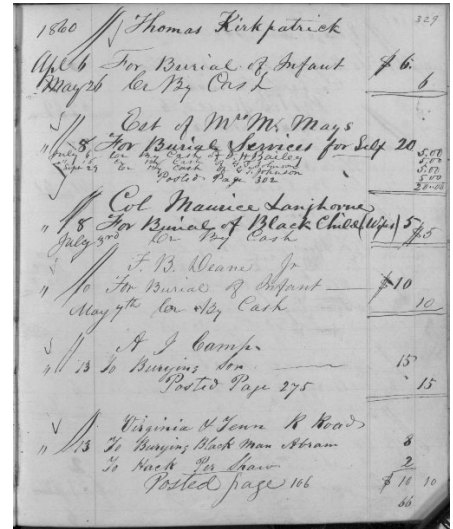 329
1860 Thomas Kirkpatrick
Apl 6 For Burial of Infant $ 6.
May 26 Cr By Cash 6
Est of Mrs M. Mays
" 8 For Burial Services for Self 20
July Cr By Cash of Bailey 5.00
Cr By Cash Johnson 5.00
Sept 29 Cr By Cash Johnson 5.00
Posted Page 302 5.00
20.00
Col Maurice Langhorne
" 8 For Burial of Black Child (Wifes) 5
July 3rd Cr By Cash $5
F. B. Deane Jr
" 10 For Burial of Infant $10
May 7th Cr By Cash 10
A J Camp
" 13 To Burying Son 15
Posted Page 275 15
Virginia & Tenn R Road
" 13 To Burying Black Man Abram 8
To Hack Per Shaw 2
Posted page 106 $ 10 10
66